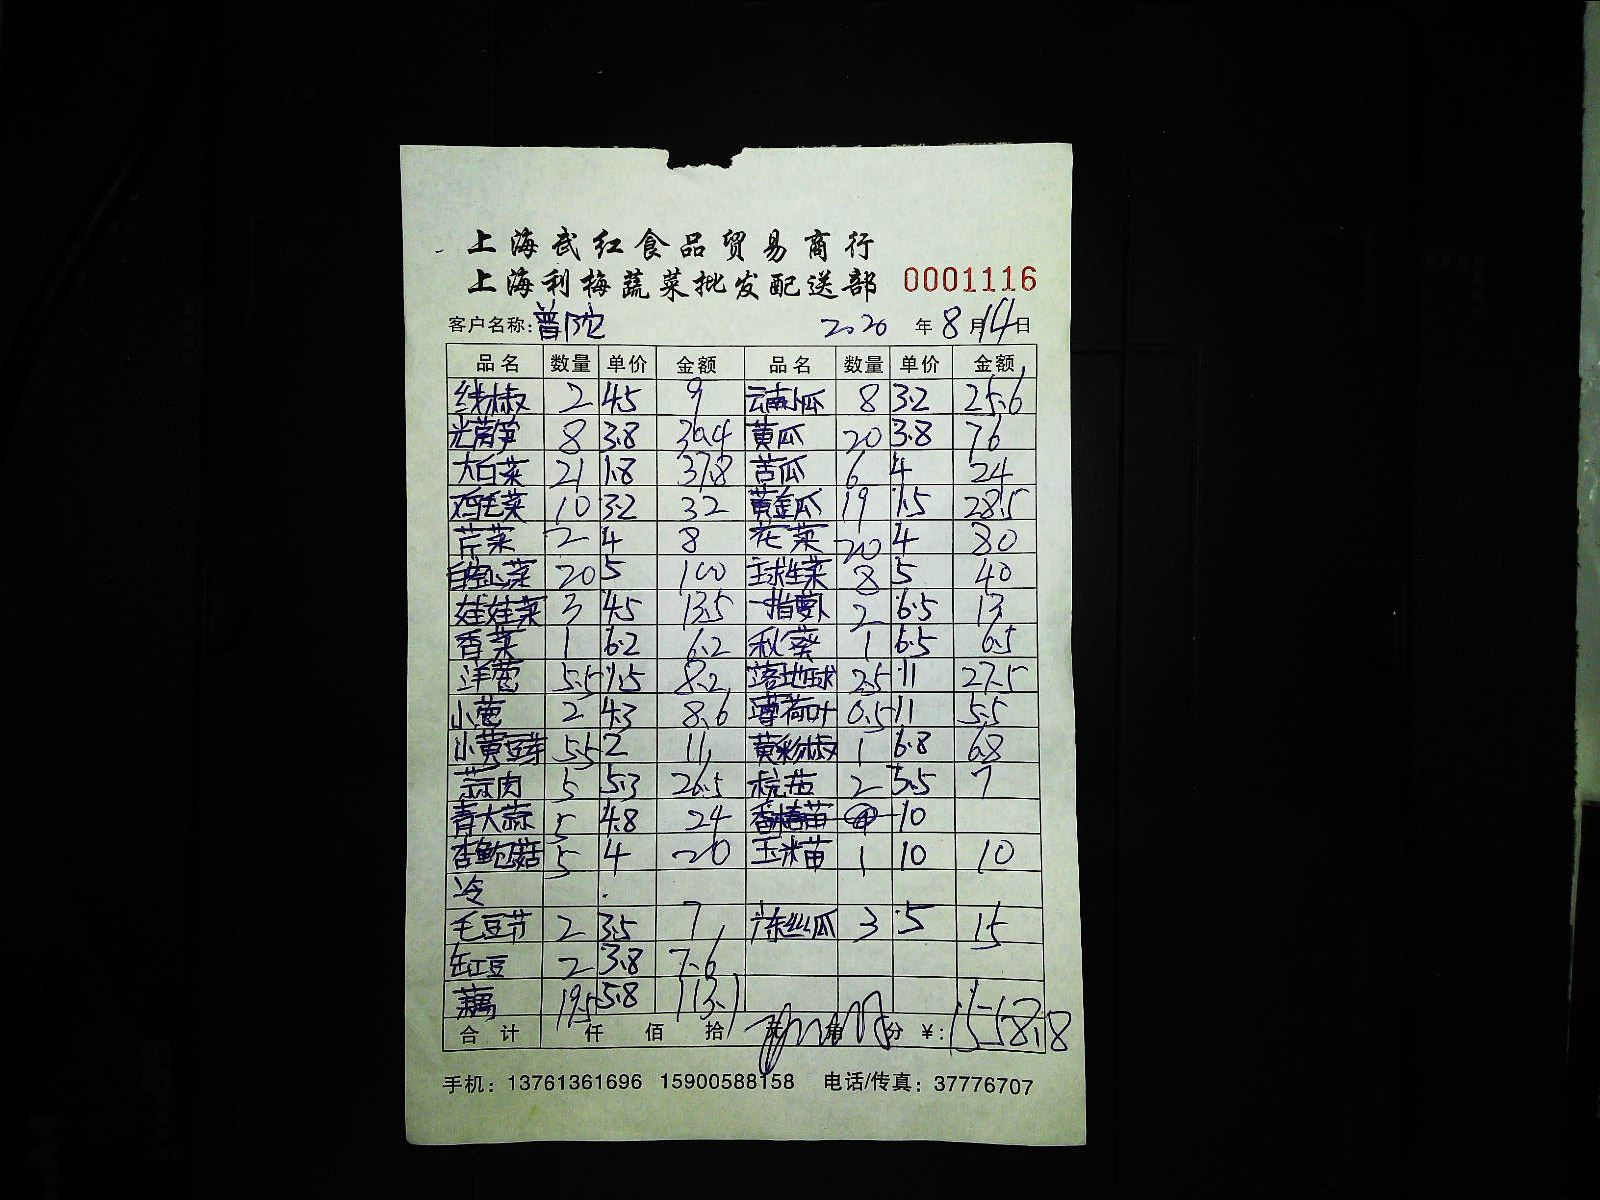 上海武红食品贸易商行
上海利梅蔬菜批发配送部 0001116
客户名称:普陀 2020 年 8 月 14 日
品名 数量 单价 金额 品名 数量 单价 金额
线椒 2 4.5 9 云南小瓜 8 3.2 25.6
光莴笋 8 3.8 30.4 黄瓜 20 3.8 76
大白菜 21 1.8 37.8 苦瓜 6 4 24
鸡毛菜 10 3.2 32 黄金瓜 19 1.5 28.5
芹菜 2 4 8 花菜 20 4 80
空心菜 20 5 100 球生菜 8 5 40
娃娃菜 3 4.5 13.5 一指萝卜 2 6.5 13
香菜 1 6.2 6.2 秋葵 1 6.5 6.5
洋葱 5.5 1.5 8.2 落地球 2.5 11 27.5
小葱 2 4.3 8.6 薄荷叶 0.5 11 5.5
小黄豆芽 5.5 2 11 黄彩椒 1 6.8 6.8
蒜肉 5 5.3 26.5 杭茄 2 3.5 7
青大蒜 5 4.8 24 香椿苗 10
杏鲍菇 5 4 20 玉米苗 1 10 10
冷
毛豆节 2 3.5 7 广东丝瓜 3 5 15
缸豆 2 3.8 7.6
藕 19.5 5.8 113.1
合计 仟 佰 拾 元 角 分 ¥: 1558.8
手机: 13761361696 15900588158 电话/传真: 37776707